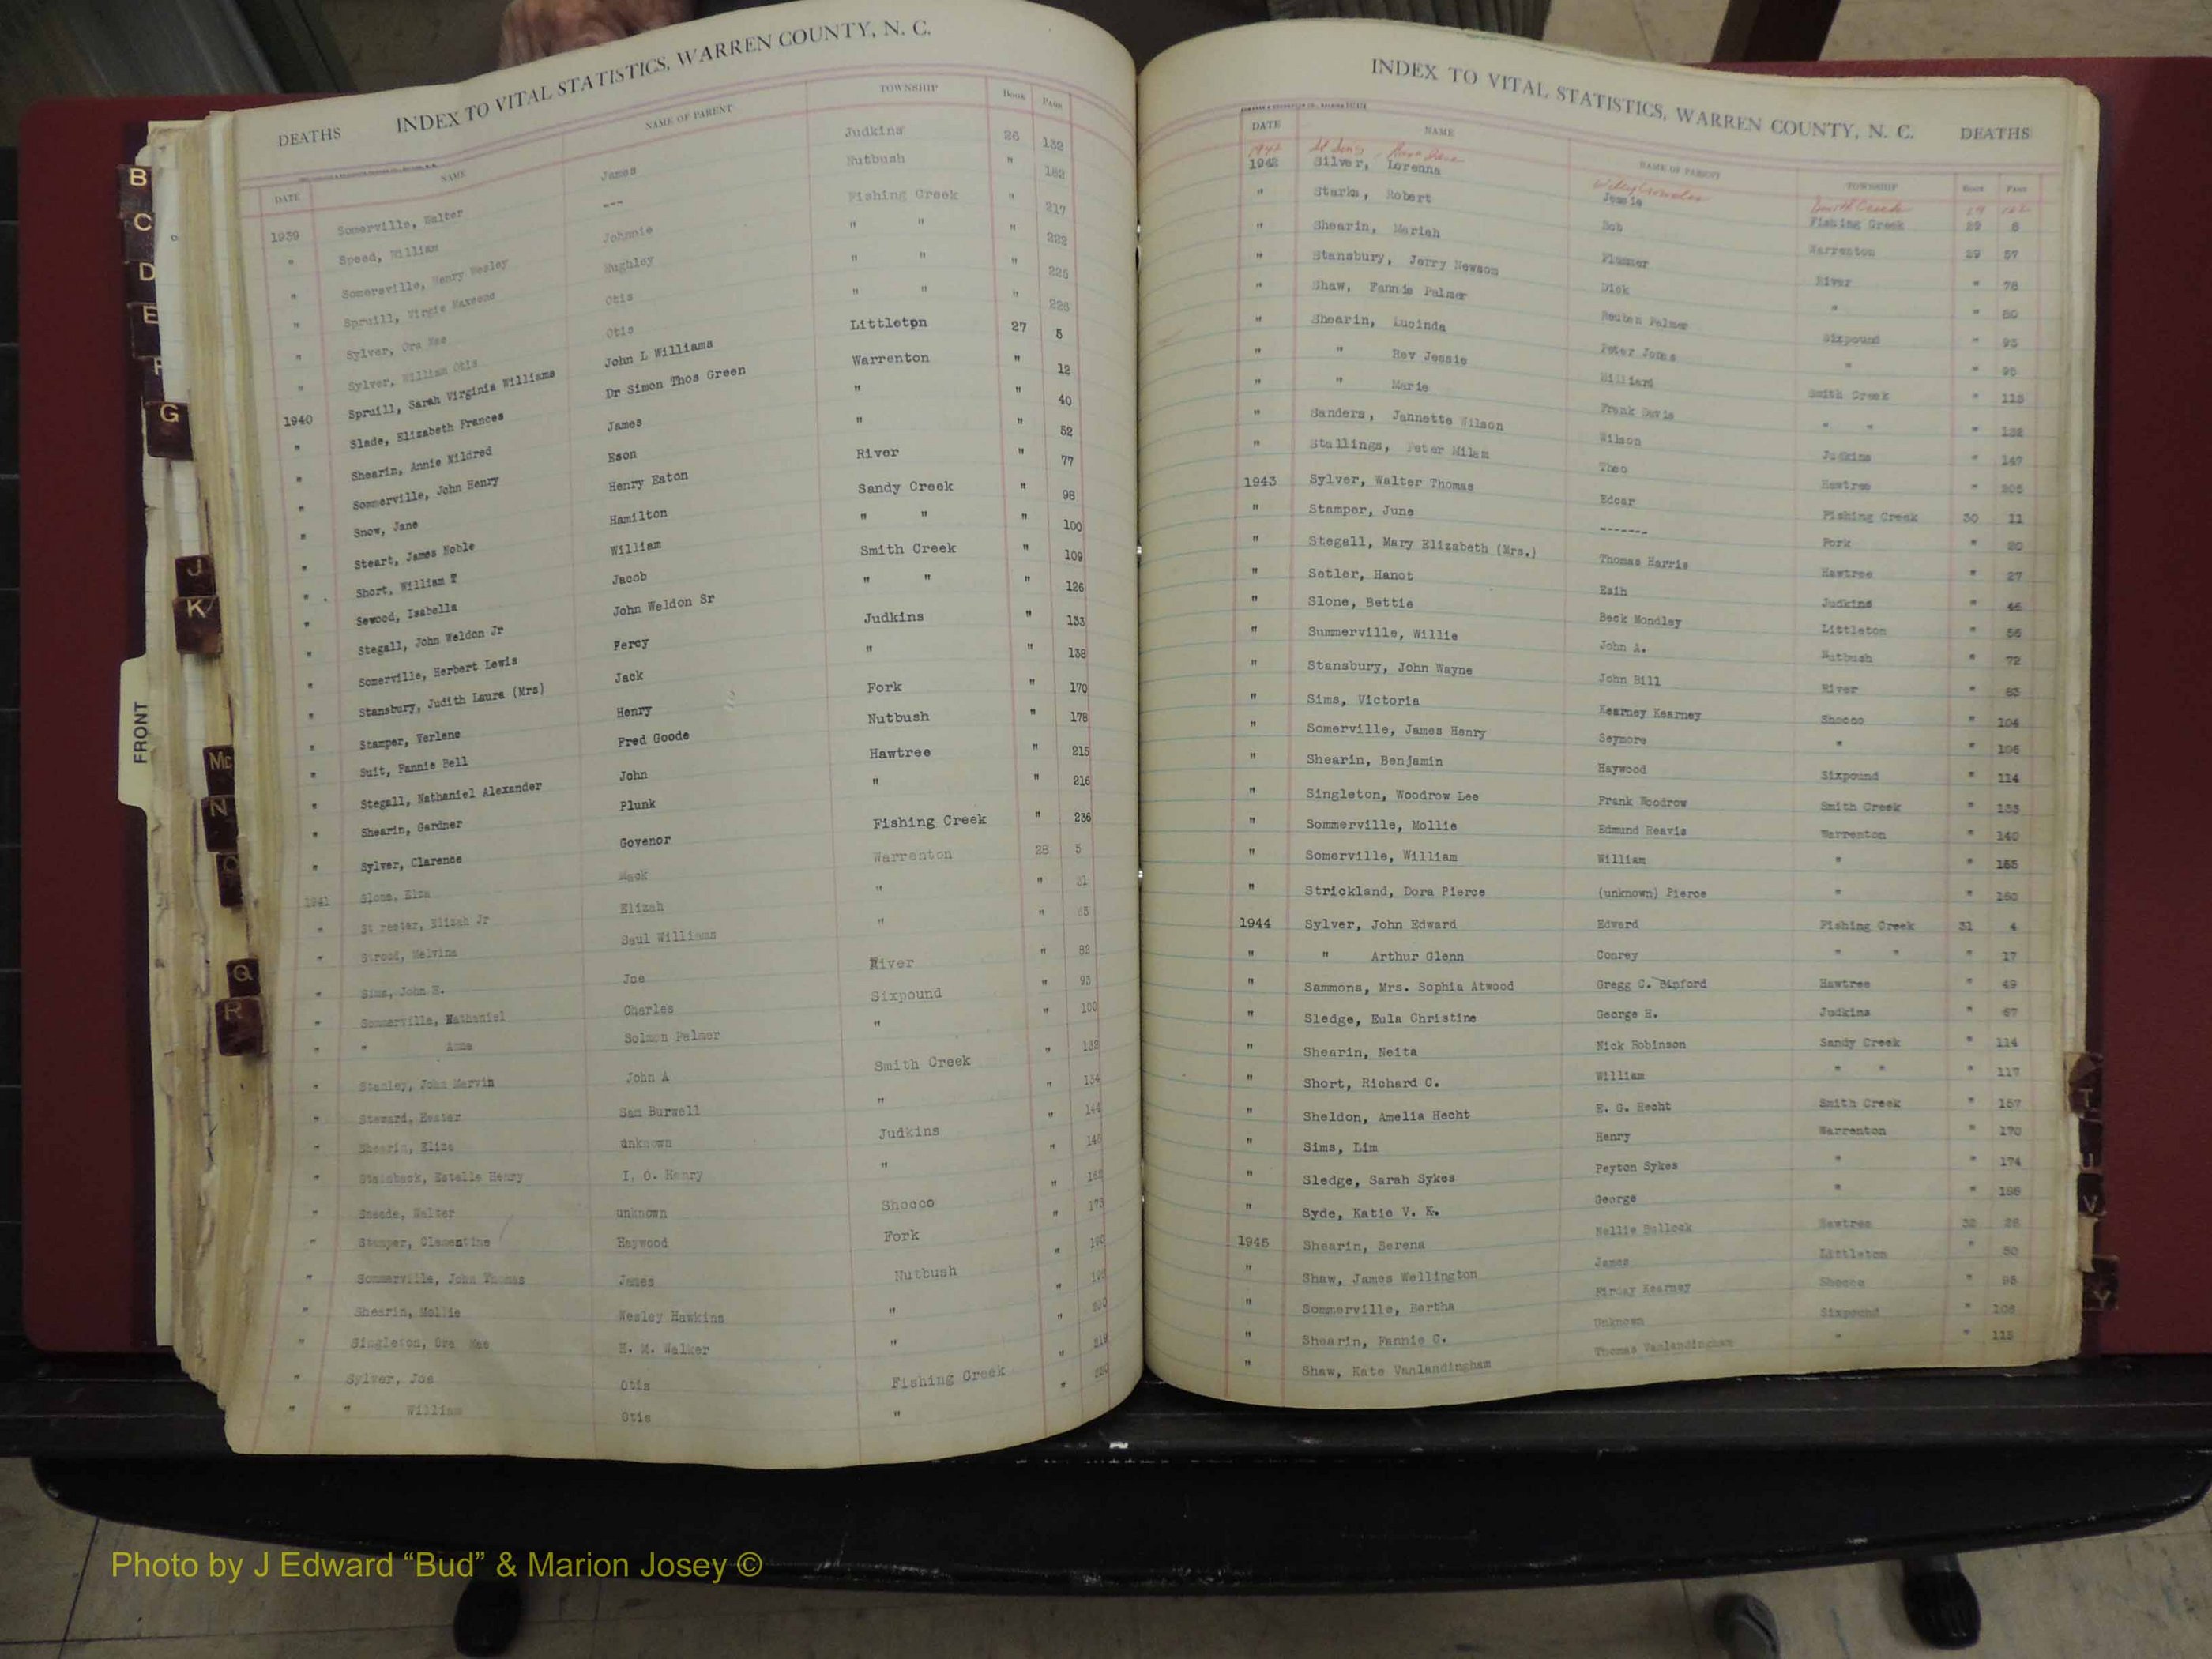 INDEX TO VITAL STATISTICS, WARREN COUNTY, N. C.
DEATHS
DATE NAME NAME OF PARENT TOWNSHIP Book Page
1939 Somerville, Walter James Judkins 26 132
" Speed, William --- Nutbush " 182
" Somersville, Henry Wesley Johnnie Fishing Creek " 217
" Spruill, Virgie Maxeene Hughley " " " 222
" Sylver, Ora Mae Otis " " " 225
" Sylver, William Otis Otis " " " 225
1940 Spruill, Sarah Virginia Williams John L Williams Littleton 27 5
" Slade, Elizabeth Frances Dr Simon Thos Green Warrenton " 12
" Shearin, Annie Mildred James " " 40
" Sommerville, John Henry Eson " " 52
" Snow, Jane Henry Eaton River " 77
" Steart, James Noble Hamilton Sandy Creek " 98
" Short, William T William " " " 100
" Sewood, Isabella Jacob Smith Creek " 109
" Stegall, John Weldon Jr John Weldon Sr " " " 126
" Somerville, Herbert Lewis Percy Judkins " 133
" Stansbury, Judith Laura (Mrs) Jack " " 138
" Stamper, Verlene Henry Fork " 170
" Suit, Fannie Bell Fred Goode Nutbush " 178
" Stegall, Nathaniel Alexander John Hawtree " 215
" Shearin, Gardner Plunk " " 216
" Sylver, Clarence Govenor Fishing Creek " 236
1941 Slone, Elza Mack Warrenton 28 5
" Elizah Jr Elizah " " 31
" Stroud, Melvina Saul Williams " " 65
" Sims, John H. Joe River " 82
" Sommerville, Nathaniel Charles Sixpound " 93
" " Anna Solmon Palmer " " 100
" Stanley, John Mervin John A Smith Creek " 132
" Steward, Hester Sam Burwell " " 134
" Shearin, Eliza unknown Judkins " 144
" Stainback, Estelle Henry I. O. Henry " " 148
" Walter unknown Shocco " 162
" Stamper, Clementine Haywood Fork " 173
" Sommerville, John Thomas James Nutbush " 190
" Shearin, Mollie Wesley Hawkins " "
" Singleton, Ora Mae H. M. Walker " " 200
" Sylver, Joe Otis Fishing Creek " 219
" " William Otis " " 220
INDEX TO VITAL STATISTICS, WARREN COUNTY, N. C. DEATHS
DATE NAME NAME OF PARENT TOWNSHIP Book Page
1942 Smith Creek
1942 Silver, Lorenna Jessie Fishing Creek 29 8
" Starks, Robert Bob Warrenton 29 57
" Shearin, Mariah Plummer River " 78
" Stansbury, Jerry Newsom Dick " " 80
" Shaw, Fannie Palmer Reuben Palmer Sixpound " 93
" Shearin, Lucinda Peter Jones " " 95
" " Rev Jessie Milliard Smith Creek " 113
" " Marie Frank Davis " " " 132
" Sanders, Jannette Wilson Wilson Judkins " 147
" Stallings, Peter Milam Theo Hawtree " 205
1943 Sylver, Walter Thomas Edcar Fishing Creek 30 11
" Stamper, June ------- Fork " 20
" Stegall, Mary Elizabeth (Mrs.) Thomas Harris Hawtree " 27
" Setler, Hanot Esih Judkins " 46
" Slone, Bettie Beck Mondley Littleton " 56
" Summerville, Willie John A. Nutbush " 72
" Stansbury, John Wayne John Bill River " 83
" Sims, Victoria Kearney Kearney Shocco " 104
" Somerville, James Henry Seymore " " 106
" Shearin, Benjamin Haywood Sixpound " 114
" Singleton, Woodrow Lee Frank Woodrow Smith Creek " 133
" Sommerville, Mollie Edmund Reavis Warrenton " 140
" Somerville, William William " " 155
" Strickland, Dora Pierce (unknown) Pierce " " 160
1944 Sylver, John Edward Edward Fishing Creek 31 4
" " Arthur Glenn Conrey " " " 17
" Sammons, Mrs. Sophia Atwood Gregg C. Binford Hawtree " 49
" Sledge, Eula Christine George H. Judkins " 67
" Shearin, Neita Nick Robinson Sandy Creek " 114
" Short, Richard C. William " " " 117
" Sheldon, Amelia Hecht E. G. Hecht Smith Creek " 157
" Sims, Lim Henry Warrenton " 170
" Sledge, Sarah Sykes Peyton Sykes " " 174
" Syde, Katie V. K. George " " 188
1945 Shearin, Serena Nellie Bullock Hawtree 32 28
" Shaw, James Wellington James Littleton " 50
" Sommerville, Bertha Firday Kearney Shocco " 95
" Shearin, Fannie C. Unknown Sixpound " 108
" Shaw, Kate Vanlandingham Thomas Vanlandingham " " 115
B
C
D
E
F
G
J
K
Mc
N
O
Q
R
FRONT
T
U
V
Y
Photo by J Edward “Bud” & Marion Josey ©